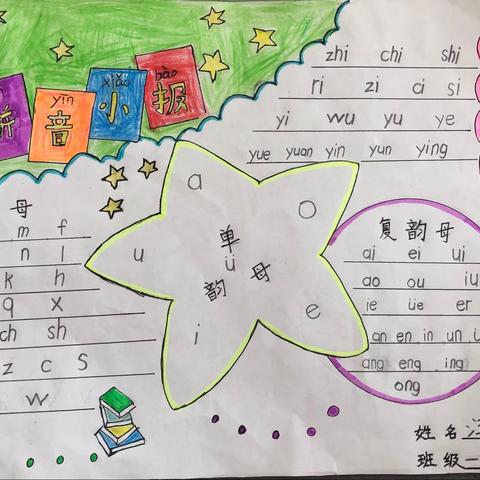 bào
xiǎo
yīn
拼音小报
zhi chi shi
ri zi ci si
yi wu yu ye
yue yuan yin yun ying
母
m f
n l
k h
q x
ch sh
z c s
w
a
o
u
ü
i
e
单
韵母
复韵母
ai ei ui
ao ou iu
ie üe er
an en in un
ang eng ing
ong
姓名
班级一